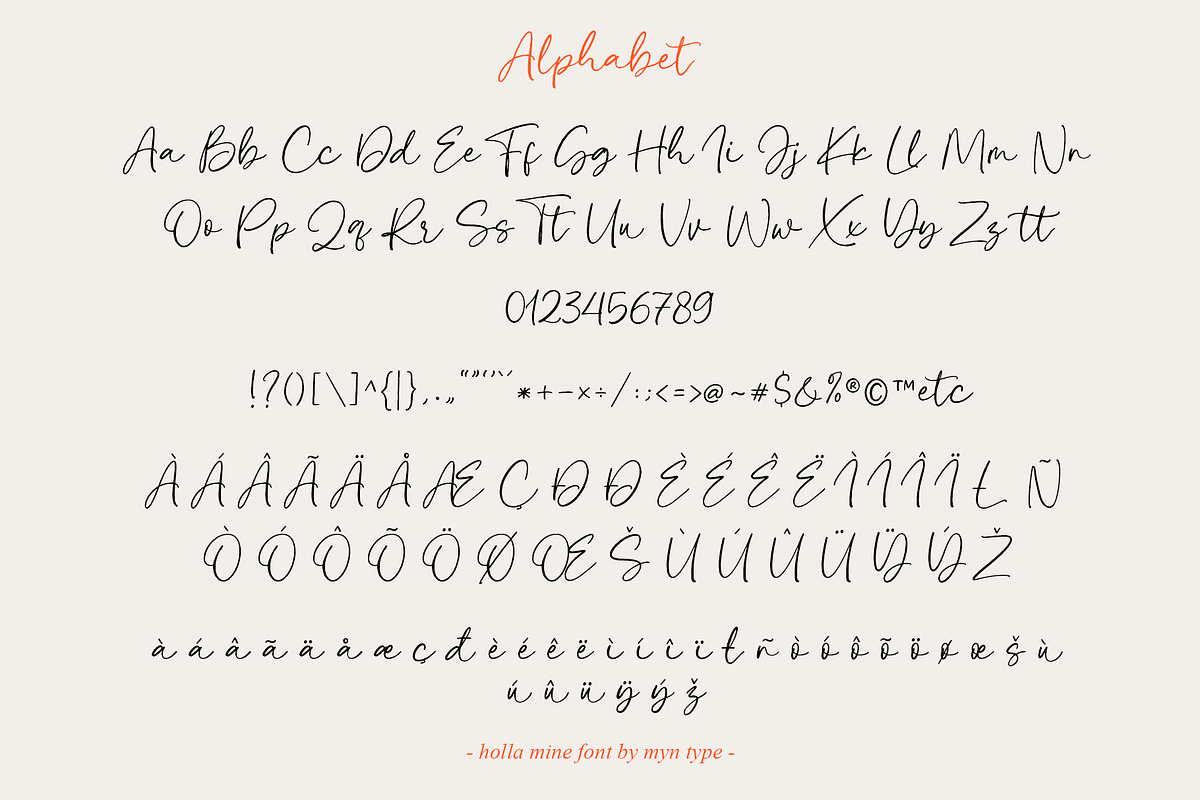 Alphabet
Aa Bb Cc Dd Ee Ff Gg Hh Ii Jj Kk Ll Mm Nn
Oo Pp Qq Rr Ss Tt Uu Vv Ww Xx Yy Zz tt
0123456789
!?()[\]^{|},.„“”‘’`´*+−×÷/:;<=>@~#$&%®©™etc
À Á Â Ã Ä Å Æ Ç Ð Đ È É Ê Ë Ì Í Î Ï Ł Ñ
Ò Ó Ô Õ Ö Ø Œ Š Ù Ú Û Ü Ÿ Ý Ž
à á â ã ä å æ ç đ è é ê ë ì í î ï ł ñ ò ó ô õ ö ø œ š ù
ú û ü ÿ ý ž
- holla mine font by myn type -